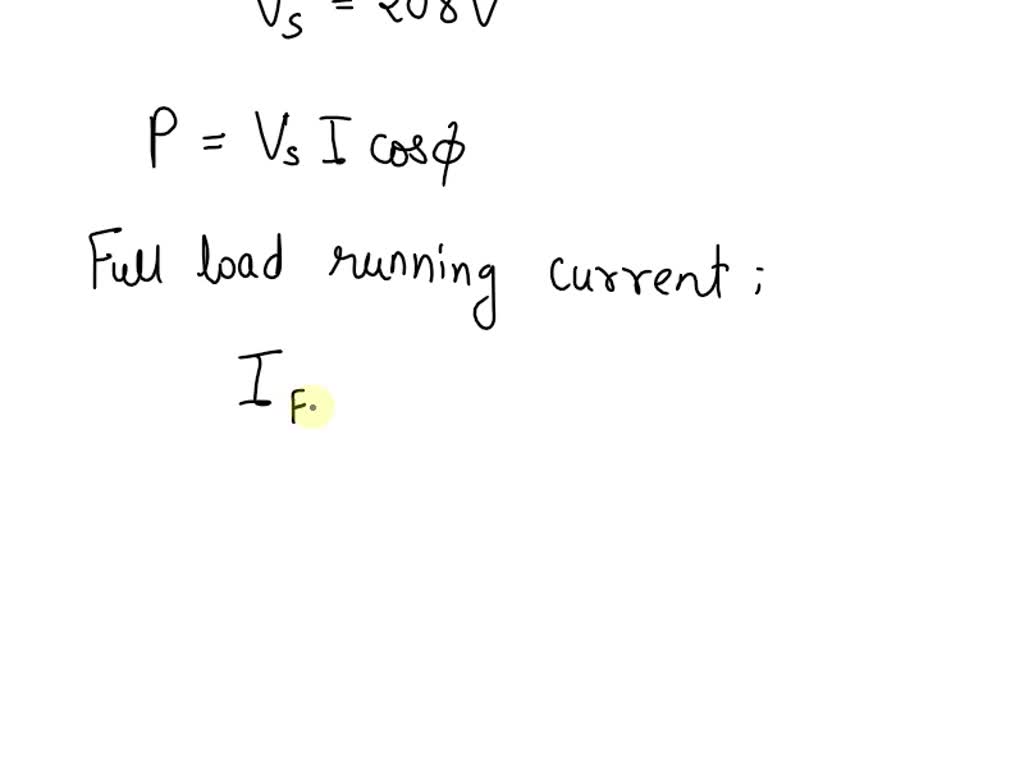 Vs = 208V
P = Vs I cosϕ
Full load running current ;
I F